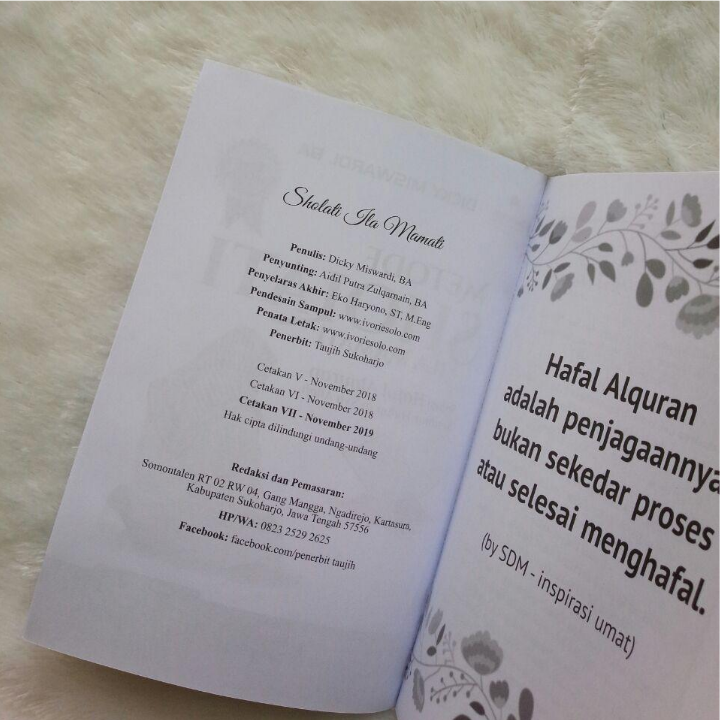 Sholati Ila Mamati
Penulis: Dicky Miswardi, BA
Penyunting: Aidil Putra Zulqarnain, BA
Penyelaras Akhir: Eko Haryono, ST, M.Eng
Pendesain Sampul: www.ivoriesolo.com
Penata Letak: www.ivoriesolo.com
Penerbit: Taujih Sukoharjo
Cetakan V - November 2018
Cetakan VI - November 2018
Cetakan VII - November 2019
Hak cipta dilindungi undang-undang
Redaksi dan Pemasaran:
Somontalen RT 02 RW 04, Gang Mangga, Ngadirejo, Kartasura,
Kabupaten Sukoharjo, Jawa Tengah 57556
HP/WA: 0823 2529 2625
Facebook: facebook.com/penerbit taujih
Hafal Alquran
adalah penjagaannya
bukan sekedar proses
atau selesai menghafal.
(by SDM - inspirasi umat)